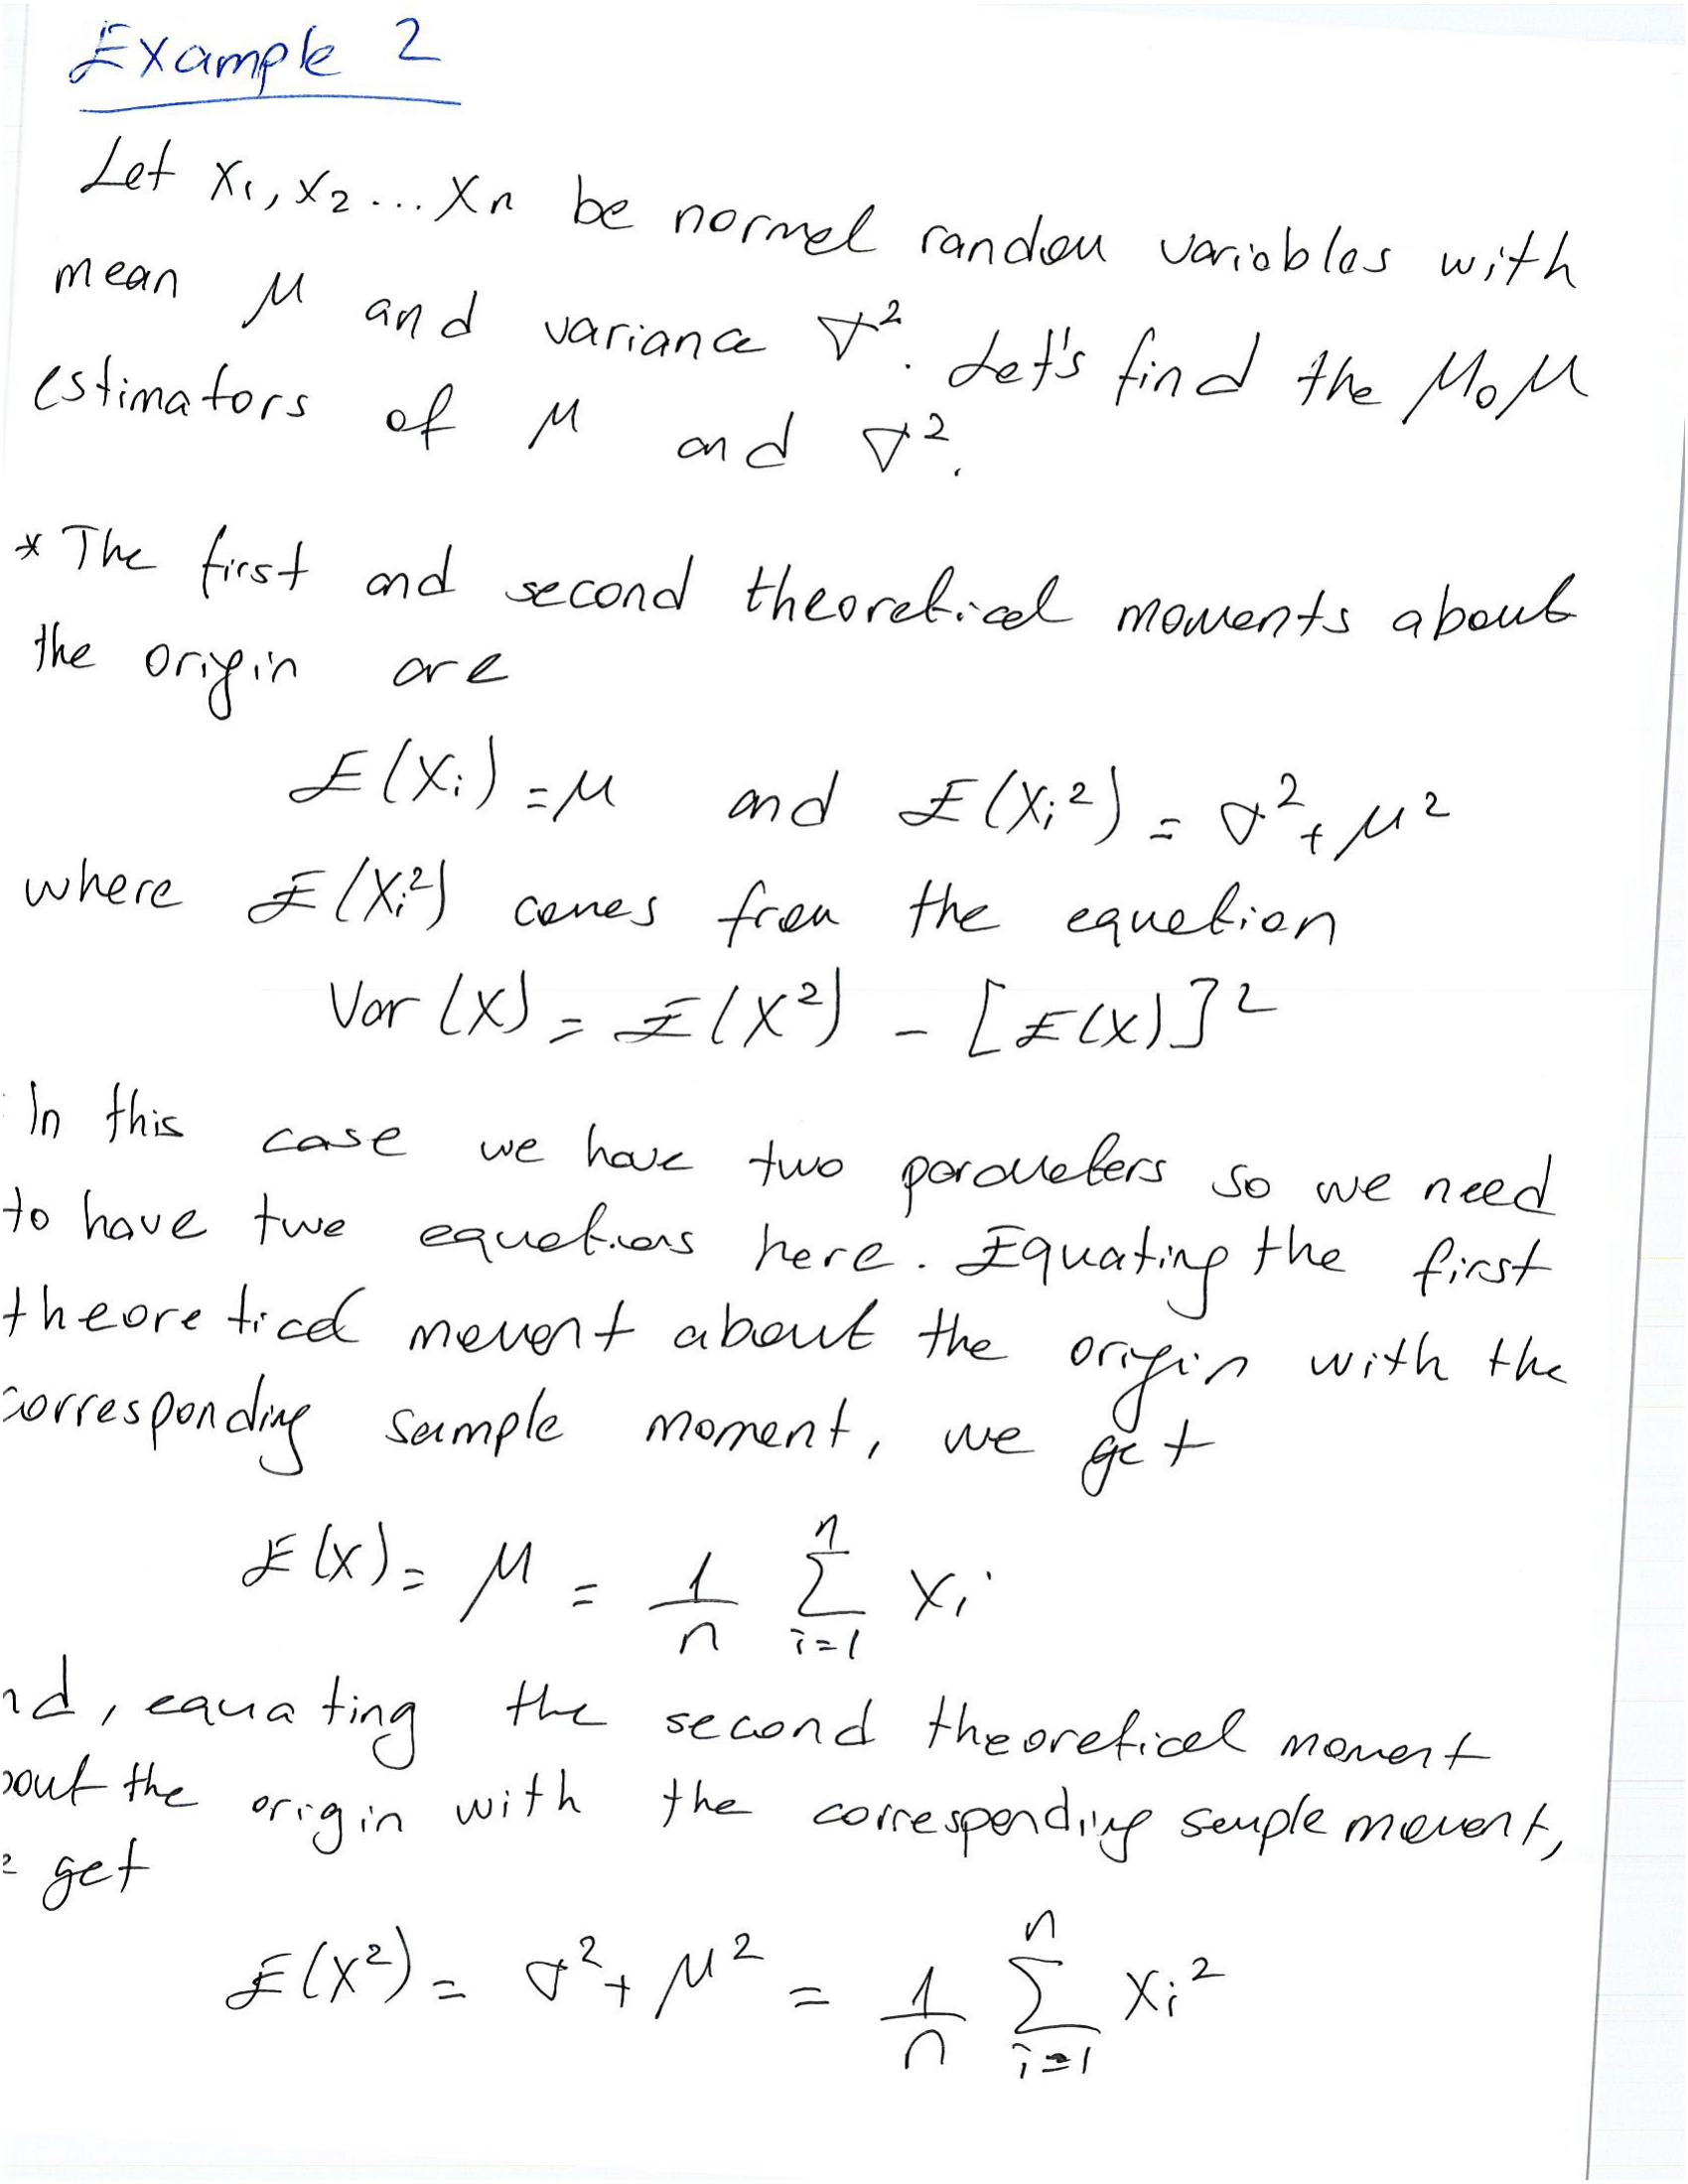 Example 2
Let X1, X2 ... Xn be normal random variables with
mean μ and variance σ². Let's find the MoM
estimators of μ and σ².
* The first and second theoretical moments about
the origin are
E(Xi) = μ and E(Xi²) = σ² + μ²
where E(Xi²) comes from the equation
Var(X) = E(X²) - [E(X)]²
In this case we have two parameters so we need
to have two equations here. Equating the first
theoretical moment about the origin with the
corresponding sample moment, we get
E(X) = μ = 1/n Σ_{i=1}^{n} Xi
nd, equating the second theoretical moment
bout the origin with the corresponding sample moment,
e get
E(X²) = σ² + μ² = 1/n Σ_{i=1}^{n} Xi²